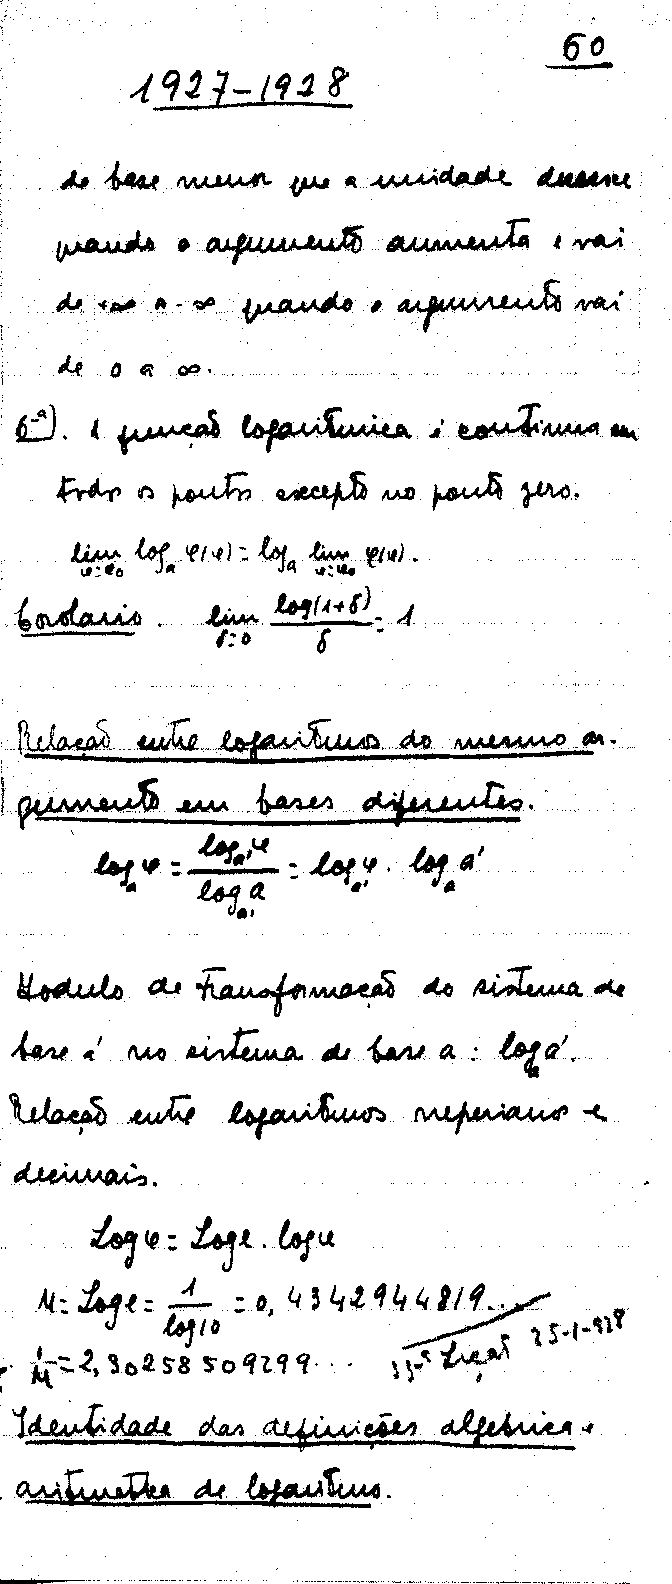 60
1927-1928
de base menor que a unidade decresce
quando o argumento aumenta e vai
de +∞ a -∞ quando o argumento vai
de 0 a ∞.
6-a). A função logaritmica é continua em
todos os pontos excepto no ponto zero.
lim φ=φ₀ logₐ φ(x) = logₐ lim φ=φ₀ φ(x).
Corolario. lim δ=0 log(1+δ)/δ = 1
Relação entre logaritmos do mesmo ar-
gumento em bases diferentes.
logₐ φ = logₐ' φ / logₐ' a = logₐ' φ · logₐ a'
Modulo de transformação do sistema de
base a' no sistema de base a : logₐ a'.
Relação entre logaritmos neperianos e
decimais.
Log φ = Log e . log φ
M = Log e = 1/log 10 = 0,4342944819...
1/M = 2,30258509299...
33-a Lição 25-1-928
Identidade das definições algebrica e
aritmetica de logaritmo.